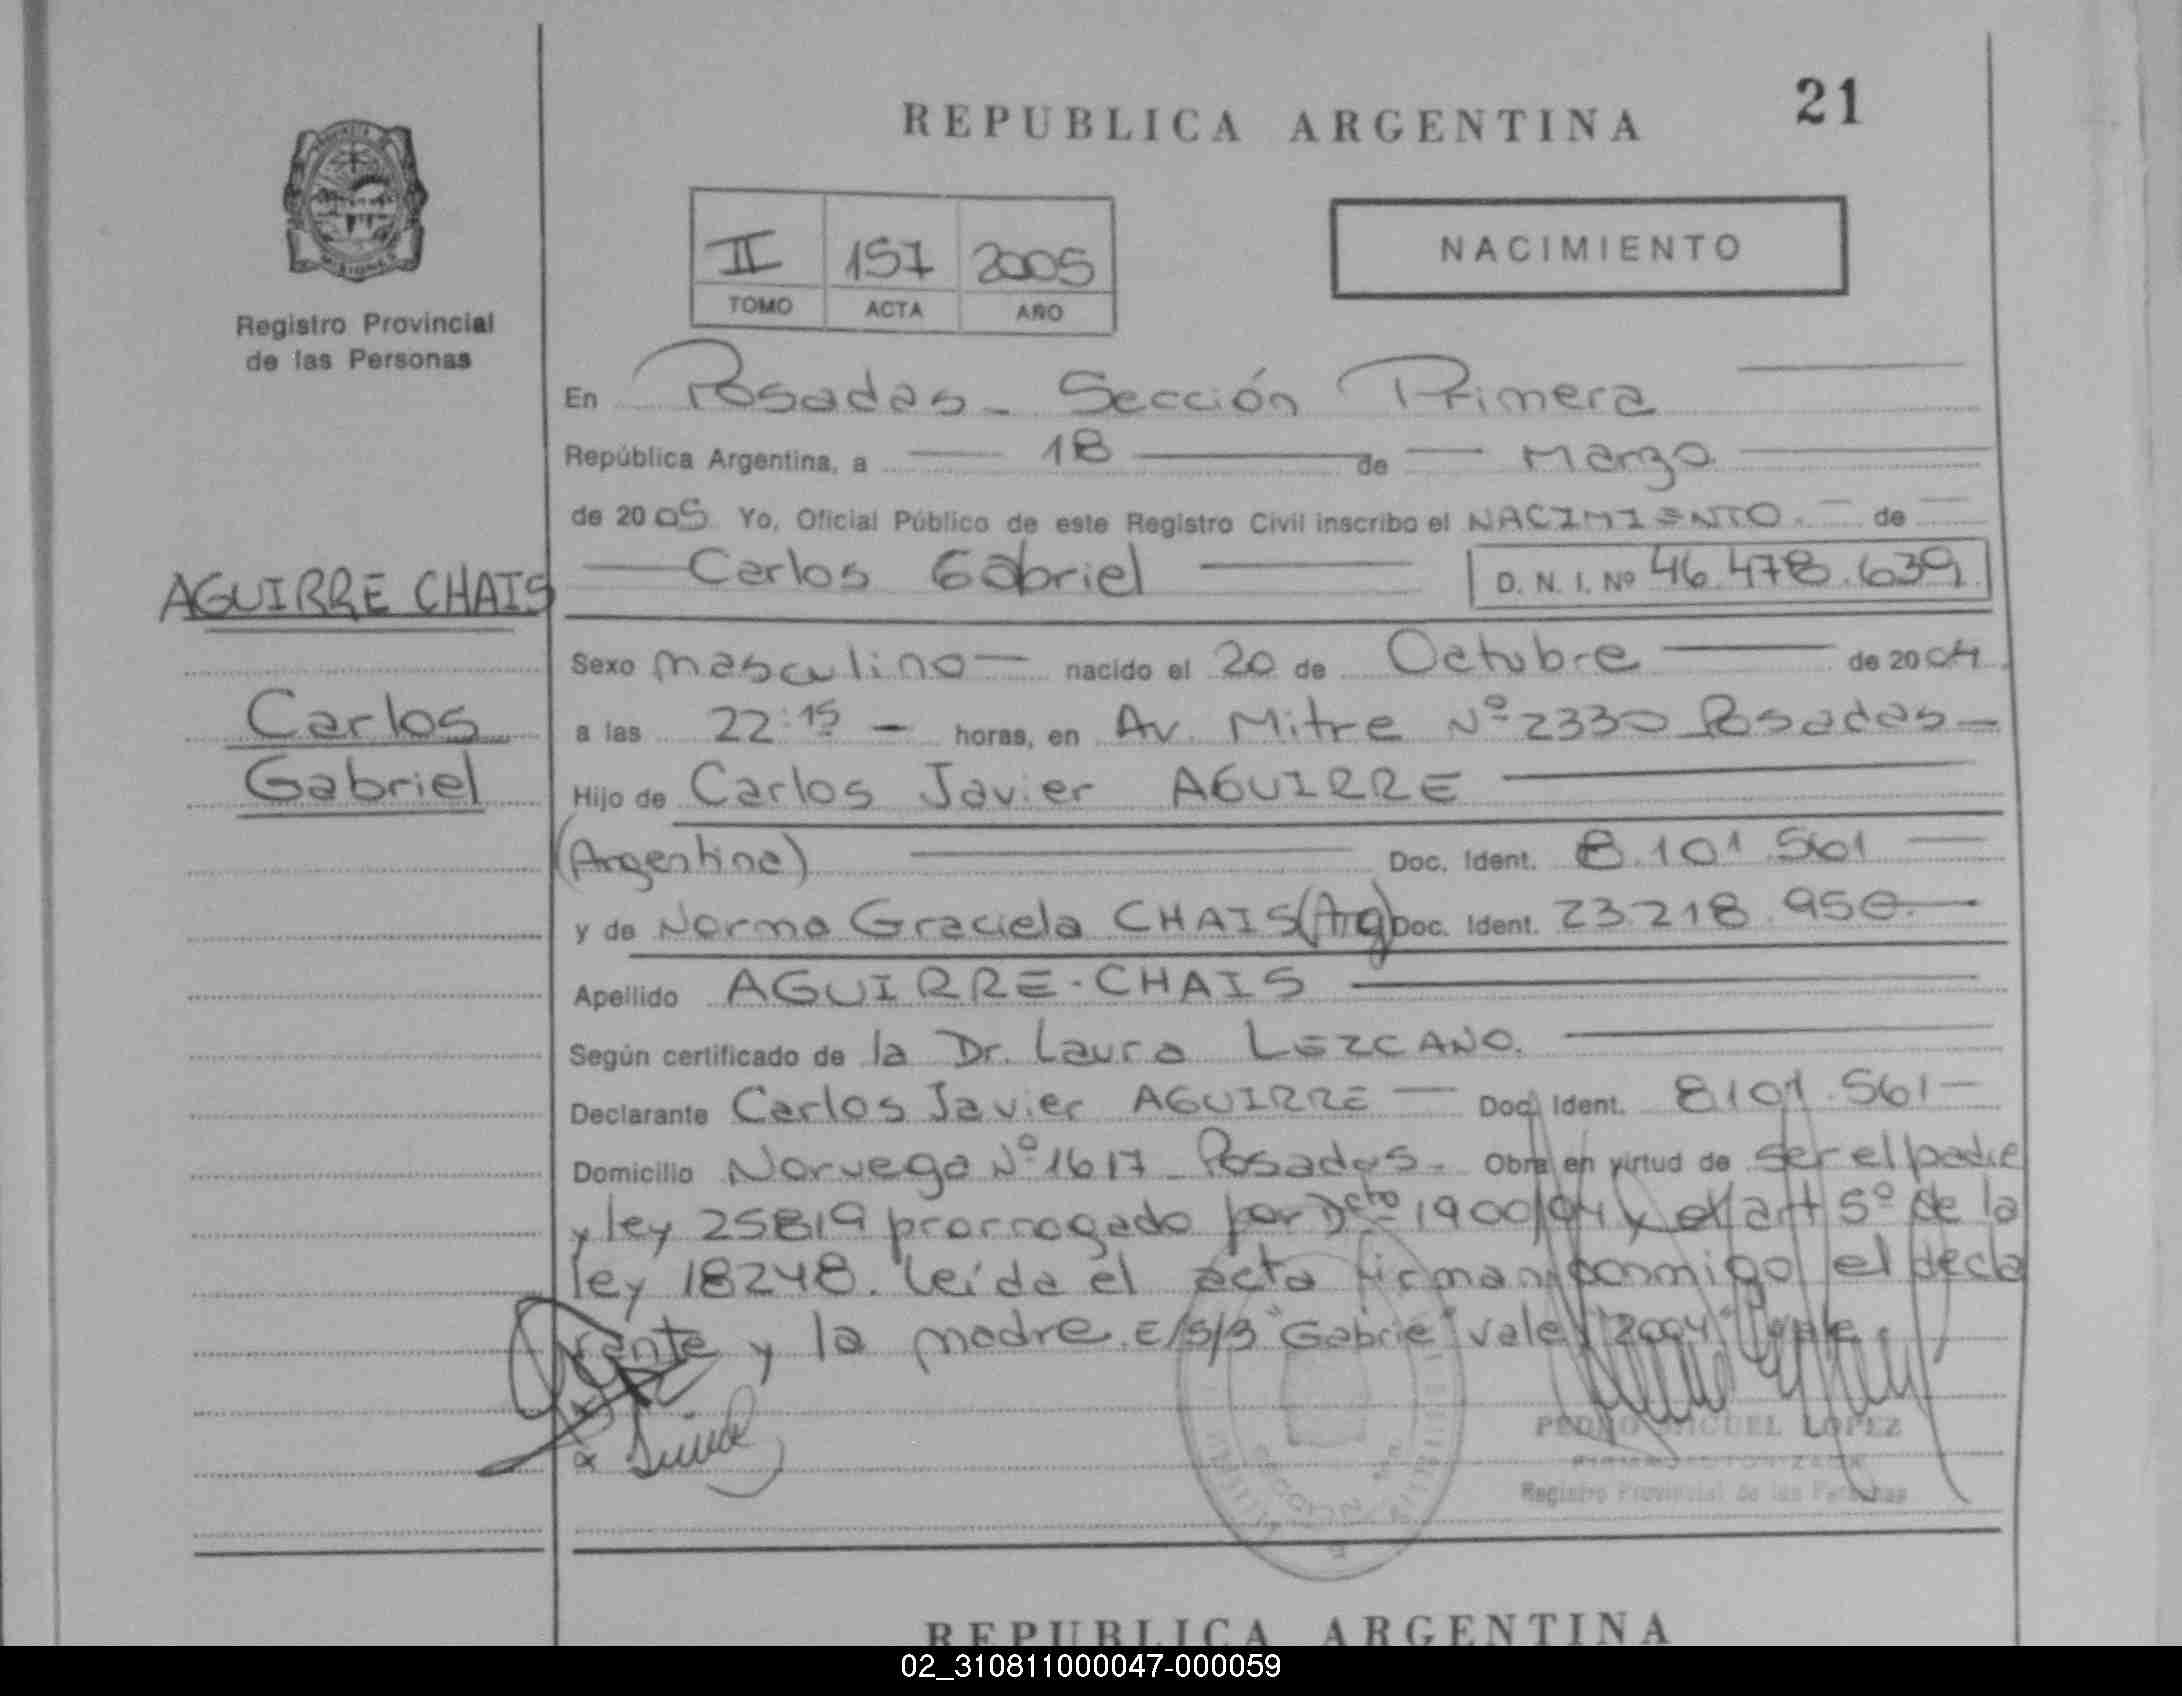 REPUBLICA ARGENTINA
21
II 157 2005
TOMO ACTA AÑO
NACIMIENTO
Registro Provincial
de las Personas
En Posadas - Sección Primera
República Argentina, a 18 de Marzo
de 2005 Yo, Oficial Público de este Registro Civil inscribo el NACIMIENTO. de
Carlos Gabriel D. N. I. Nº 46.478.639
AGUIRRE CHAIS
Carlos
Gabriel
Sexo masculino nacido el 20 de Octubre de 2004
a las 22:15 - horas, en Av. Mitre Nº 2330 Posadas
Hijo de Carlos Javier AGUIRRE
(Argentina) Doc. Ident. 8.101.561
y de Norma Graciela CHAIS (Arg) Doc. Ident. 23.218.950
Apellido AGUIRRE-CHAIS
Según certificado de la Dr. Laura LEZCANO.
Declarante Carlos Javier AGUIRRE Doc. Ident. 8.101.561
Domicilio Noruega Nº 1617 - Posadas. Obra en virtud de ser el padre
y ley 25819 prorrogado por Dcto 1900/04 y el art 5º de la
ley 18248. Leída el acta firman conmigo el decla
rante y la madre. E/S/B "Gabrie" Vale "2004" Vale.
PEDRO MIGUEL LOPEZ
Registro Provincial de las Personas
REPUBLICA ARGENTINA
02_310811000047-000059